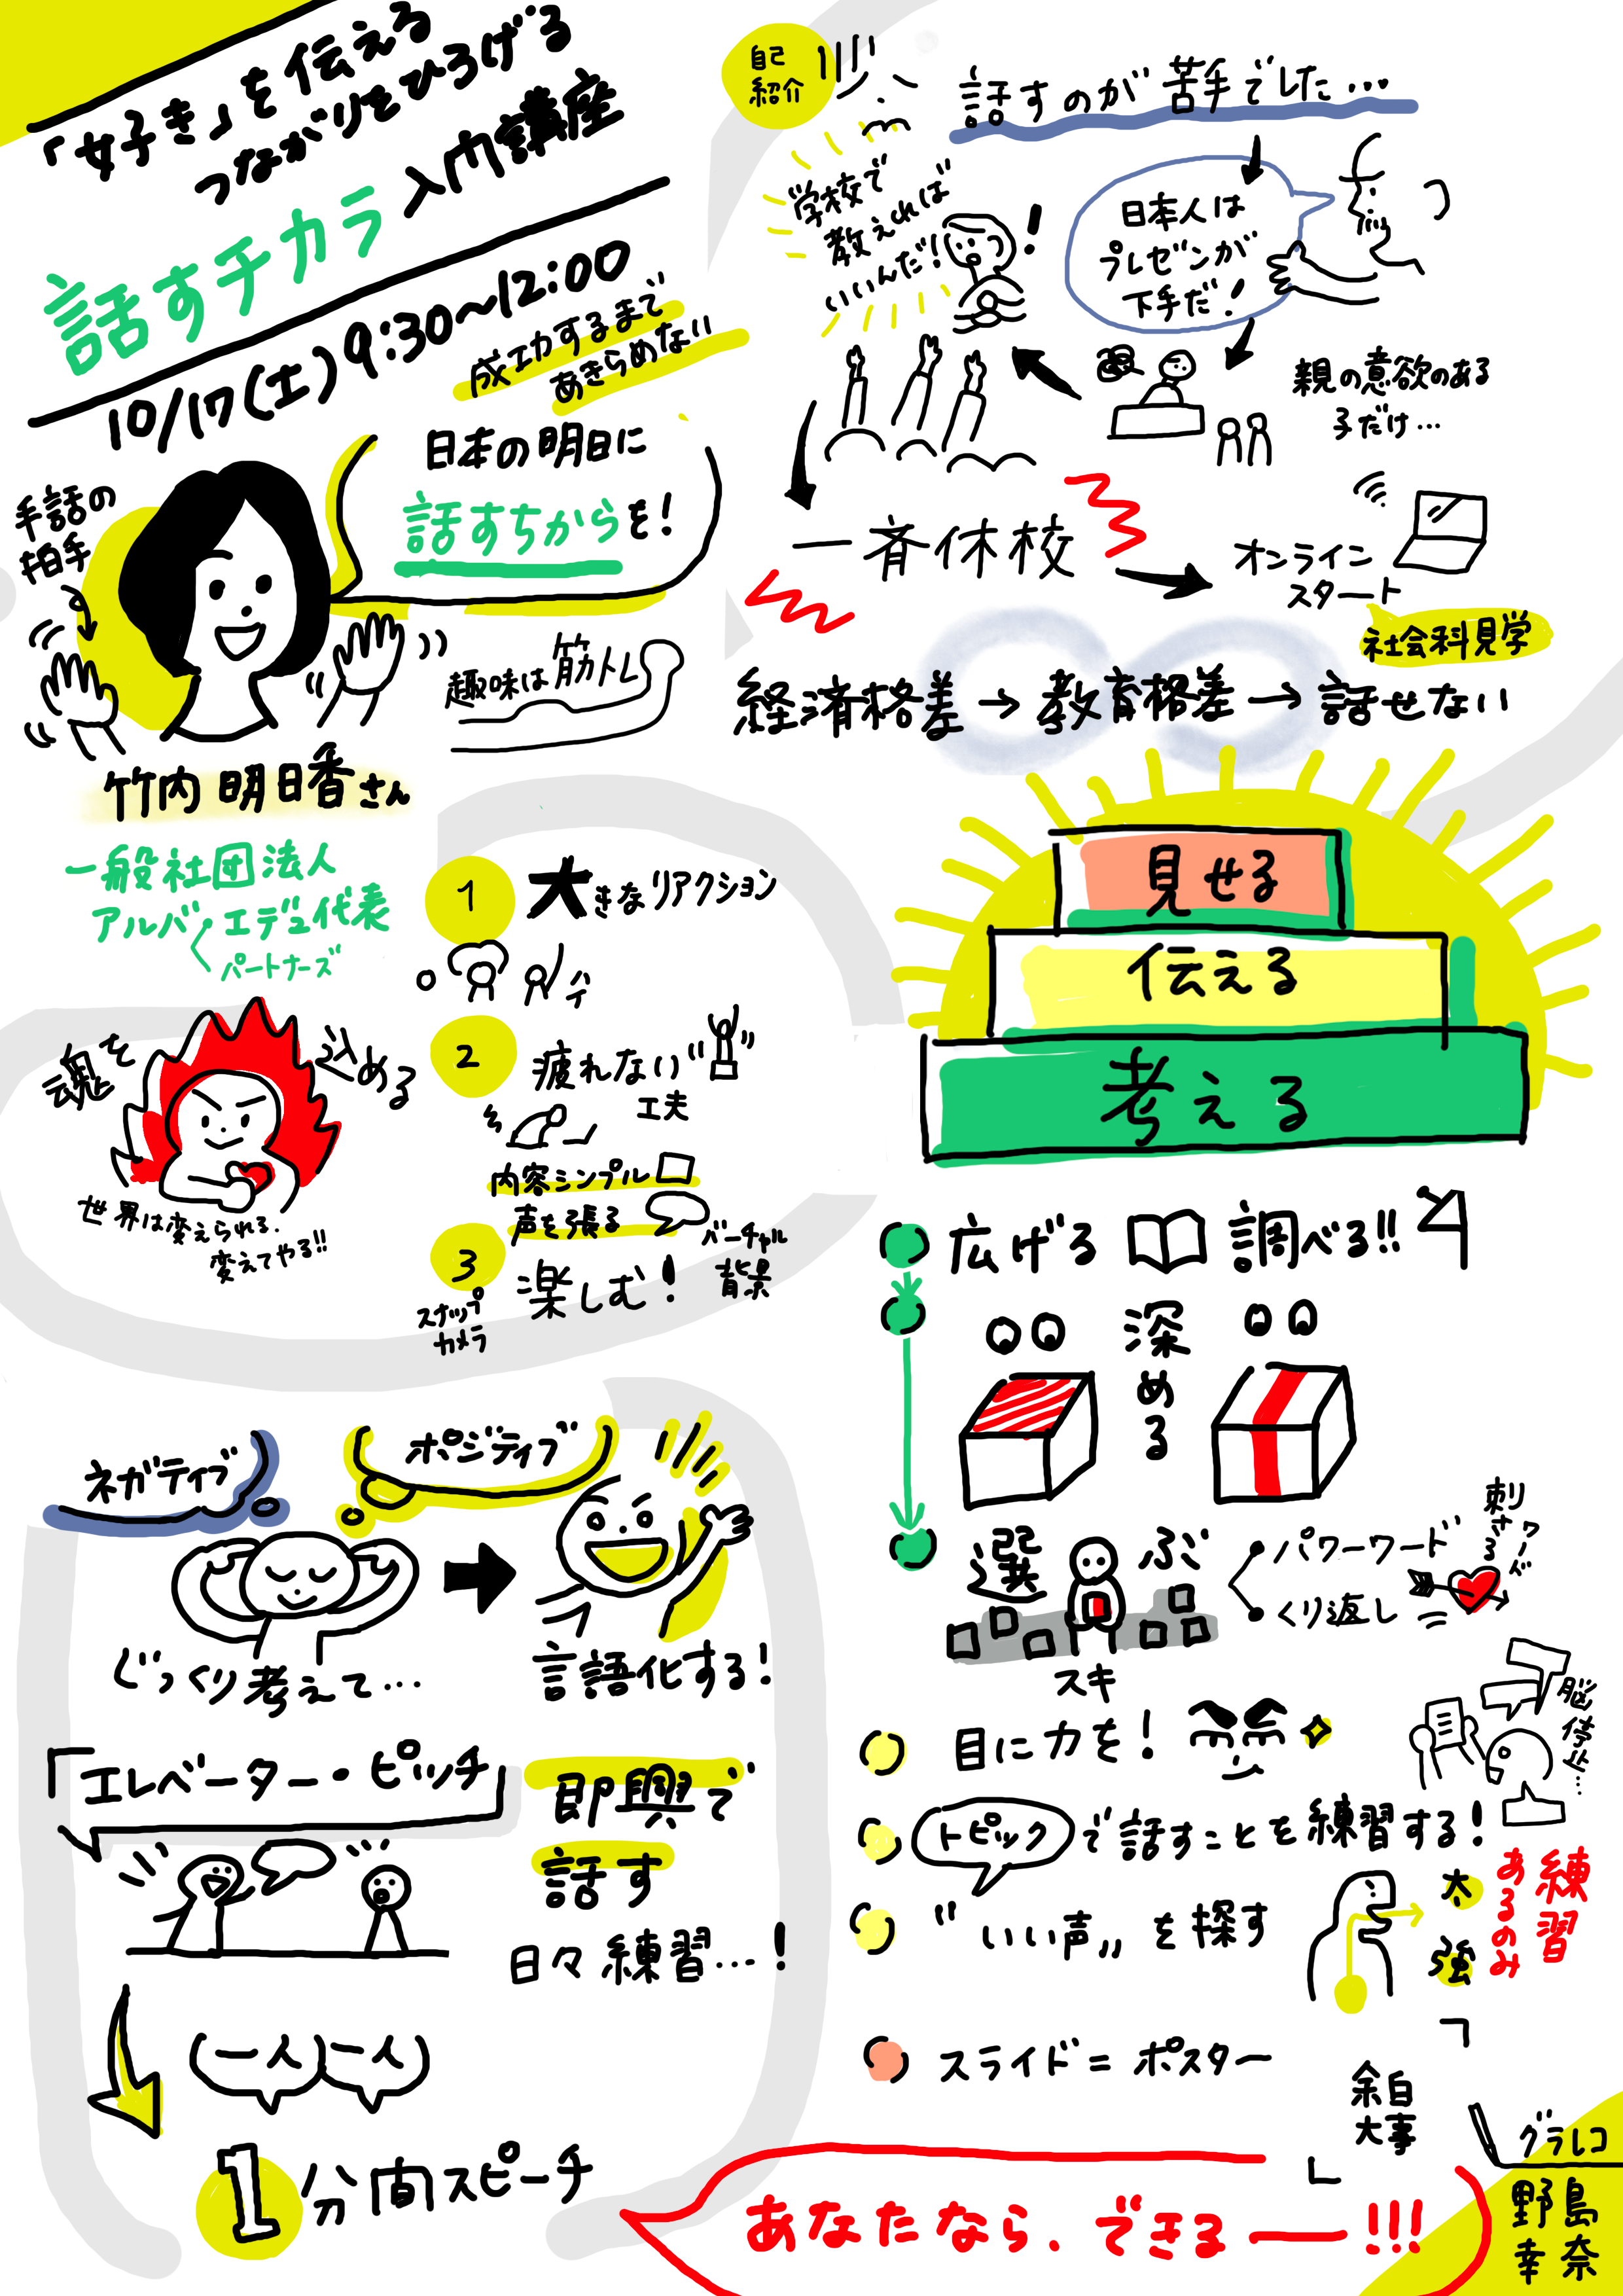 「好き」を伝える
つながりをひろげる
話すチカラ入門講座
10/17(土)9:30〜12:00
成功するまで
あきらめない
日本の明日に
話すちからを!
手話の
拍手
趣味は筋トレ
竹内明日香さん
一般社団法人
アルバ・エデュ代表
パートナーズ
魂を込める
世界は変えられる.
変えてやる!!
1 大きなリアクション
ハイ
2 疲れない
工夫
内容シンプル
声を張る
3 楽しむ!
バーチャル
背景
スナップ
カメラ
ネガティブ
ポジティブ
じっくり考えて…
言語化する!
「エレベーター・ピッチ」
即興で
話す
日々練習…!
(一人)(一人)
1分間スピーチ
自己
紹介
話すのが苦手でした…
日本人は
プレゼンが
下手だ!
学校で
教えれば
いいんだ!
!
親の意欲のある
子だけ…
一斉休校
オンライン
スタート
社会科見学
経済格差→教育格差→話せない
見せる
伝える
考える
広げる 調べる!!
深める
選ぶ
スキ
パワーワード
くり返し
刺さるワード
目に力を!
脳停止…
トピックで話すことを練習する!
"いい声"を探す
太
強
練習
あるのみ
スライド=ポスター
「余白
大事」
あなたなら、できるー!!!
グラレコ
野島
幸奈